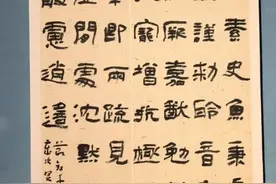 素史魚秉
謹勅聆音
厥嘉猷勉
寵增抗極
即兩疏見
閒處沈默
散慮逍遙